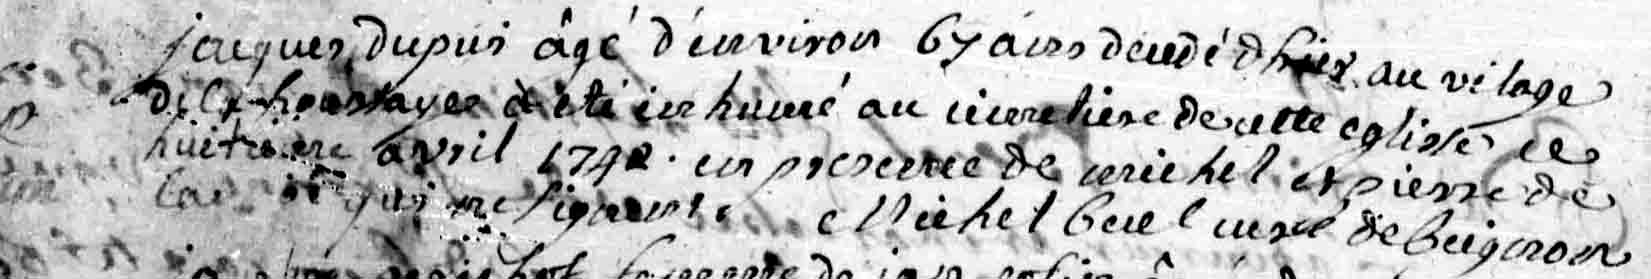 jacques dupuis âgé d'environ 67 ans decedé d'hier au vilage
de la houssayes à été inhumé au cimetiere de cette eglisse ce
huitieme avril 1742. en presence de michel et pierre de
qui ne signent. Michel curé de beignon